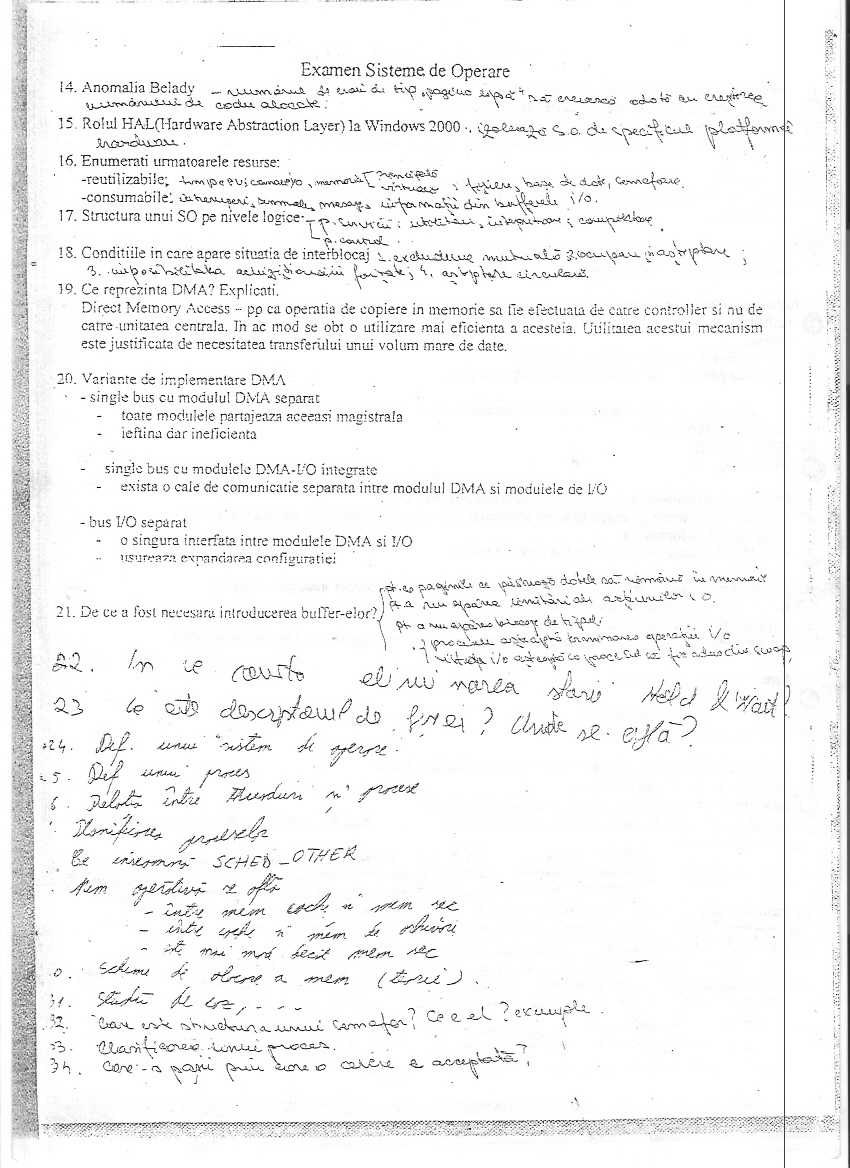 Examen Sisteme de Operare
14. Anomalia Belady - numărul de erori de tip "pagină lipsă" să crească odată cu creșterea
numărului de cadre alocate.
15. Rolul HAL(Hardware Abstraction Layer) la Windows 2000 - izolează S.O. de specificul platformei
hardware.
16. Enumerati urmatoarele resurse:
-reutilizabile: memoria principală
virtuală ; fișiere, baze de date, semafoare.
-consumabile: întreruperi, semnale, mesaje, informații din bufferele i/o.
17. Structura unui SO pe nivele logice - p. servicii : utilitare, interpretoare, compilatoare
p. control.
18. Conditiile in care apare situatia de interblocaj 1. excludere mutuală 2. ocupare și așteptare ;
3. imposibilitatea achiziționării forțate ; 4. așteptare circulară.
19. Ce reprezinta DMA? Explicati.
Direct Memory Access – pp ca operatia de copiere in memorie sa fie efectuata de catre controller si nu de
catre unitatea centrala. In ac mod se obt o utilizare mai eficienta a acesteia. Utilitatea acestui mecanism
este justificata de necesitatea transferului unui volum mare de date.
20. Variante de implementare DMA
- single bus cu modulul DMA separat
- toate modulele partajeaza aceeasi magistrala
- ieftina dar ineficienta
- single bus cu modulele DMA-I/O integrate
- exista o cale de comunicatie separata intre modulul DMA si modulele de I/O
- bus I/O separat
- o singura interfata intre modulele DMA si I/O
- usureaza expandarea configuratiei
pt. ca paginile ce păstrează datele să rămână în memorie
21. De ce a fost necesara introducerea buffer-elor? pt a nu apărea limitări ale acțiunilor S.O.
pt a nu apărea blocaje de tipul:
procesele așteaptă terminarea operației i/o
i/o așteaptă ca procesul să fie adus din swap.
22. In ce constă eliminarea stării Hold & Wait?
23 Ce este descriptorul de fișier? Unde se află?
24. Def. unui sistem de operare.
25. Def unui proces
6. Relația între threaduri și procese
Planificarea proceselor
Ce înseamnă SCHED_OTHER
Mem operativă se află
- între mem cache și mem sec
- între cache și mem de arhivare
- este mai mică decât mem sec
0. Scheme de alocare a mem (teorie).
31. Studiu de caz, - - -
32. Care este structura unui semafor? Ce e el? exemple.
33. Clasificarea unui proces.
34. Care-s pașii prin care o cerere e acceptată?